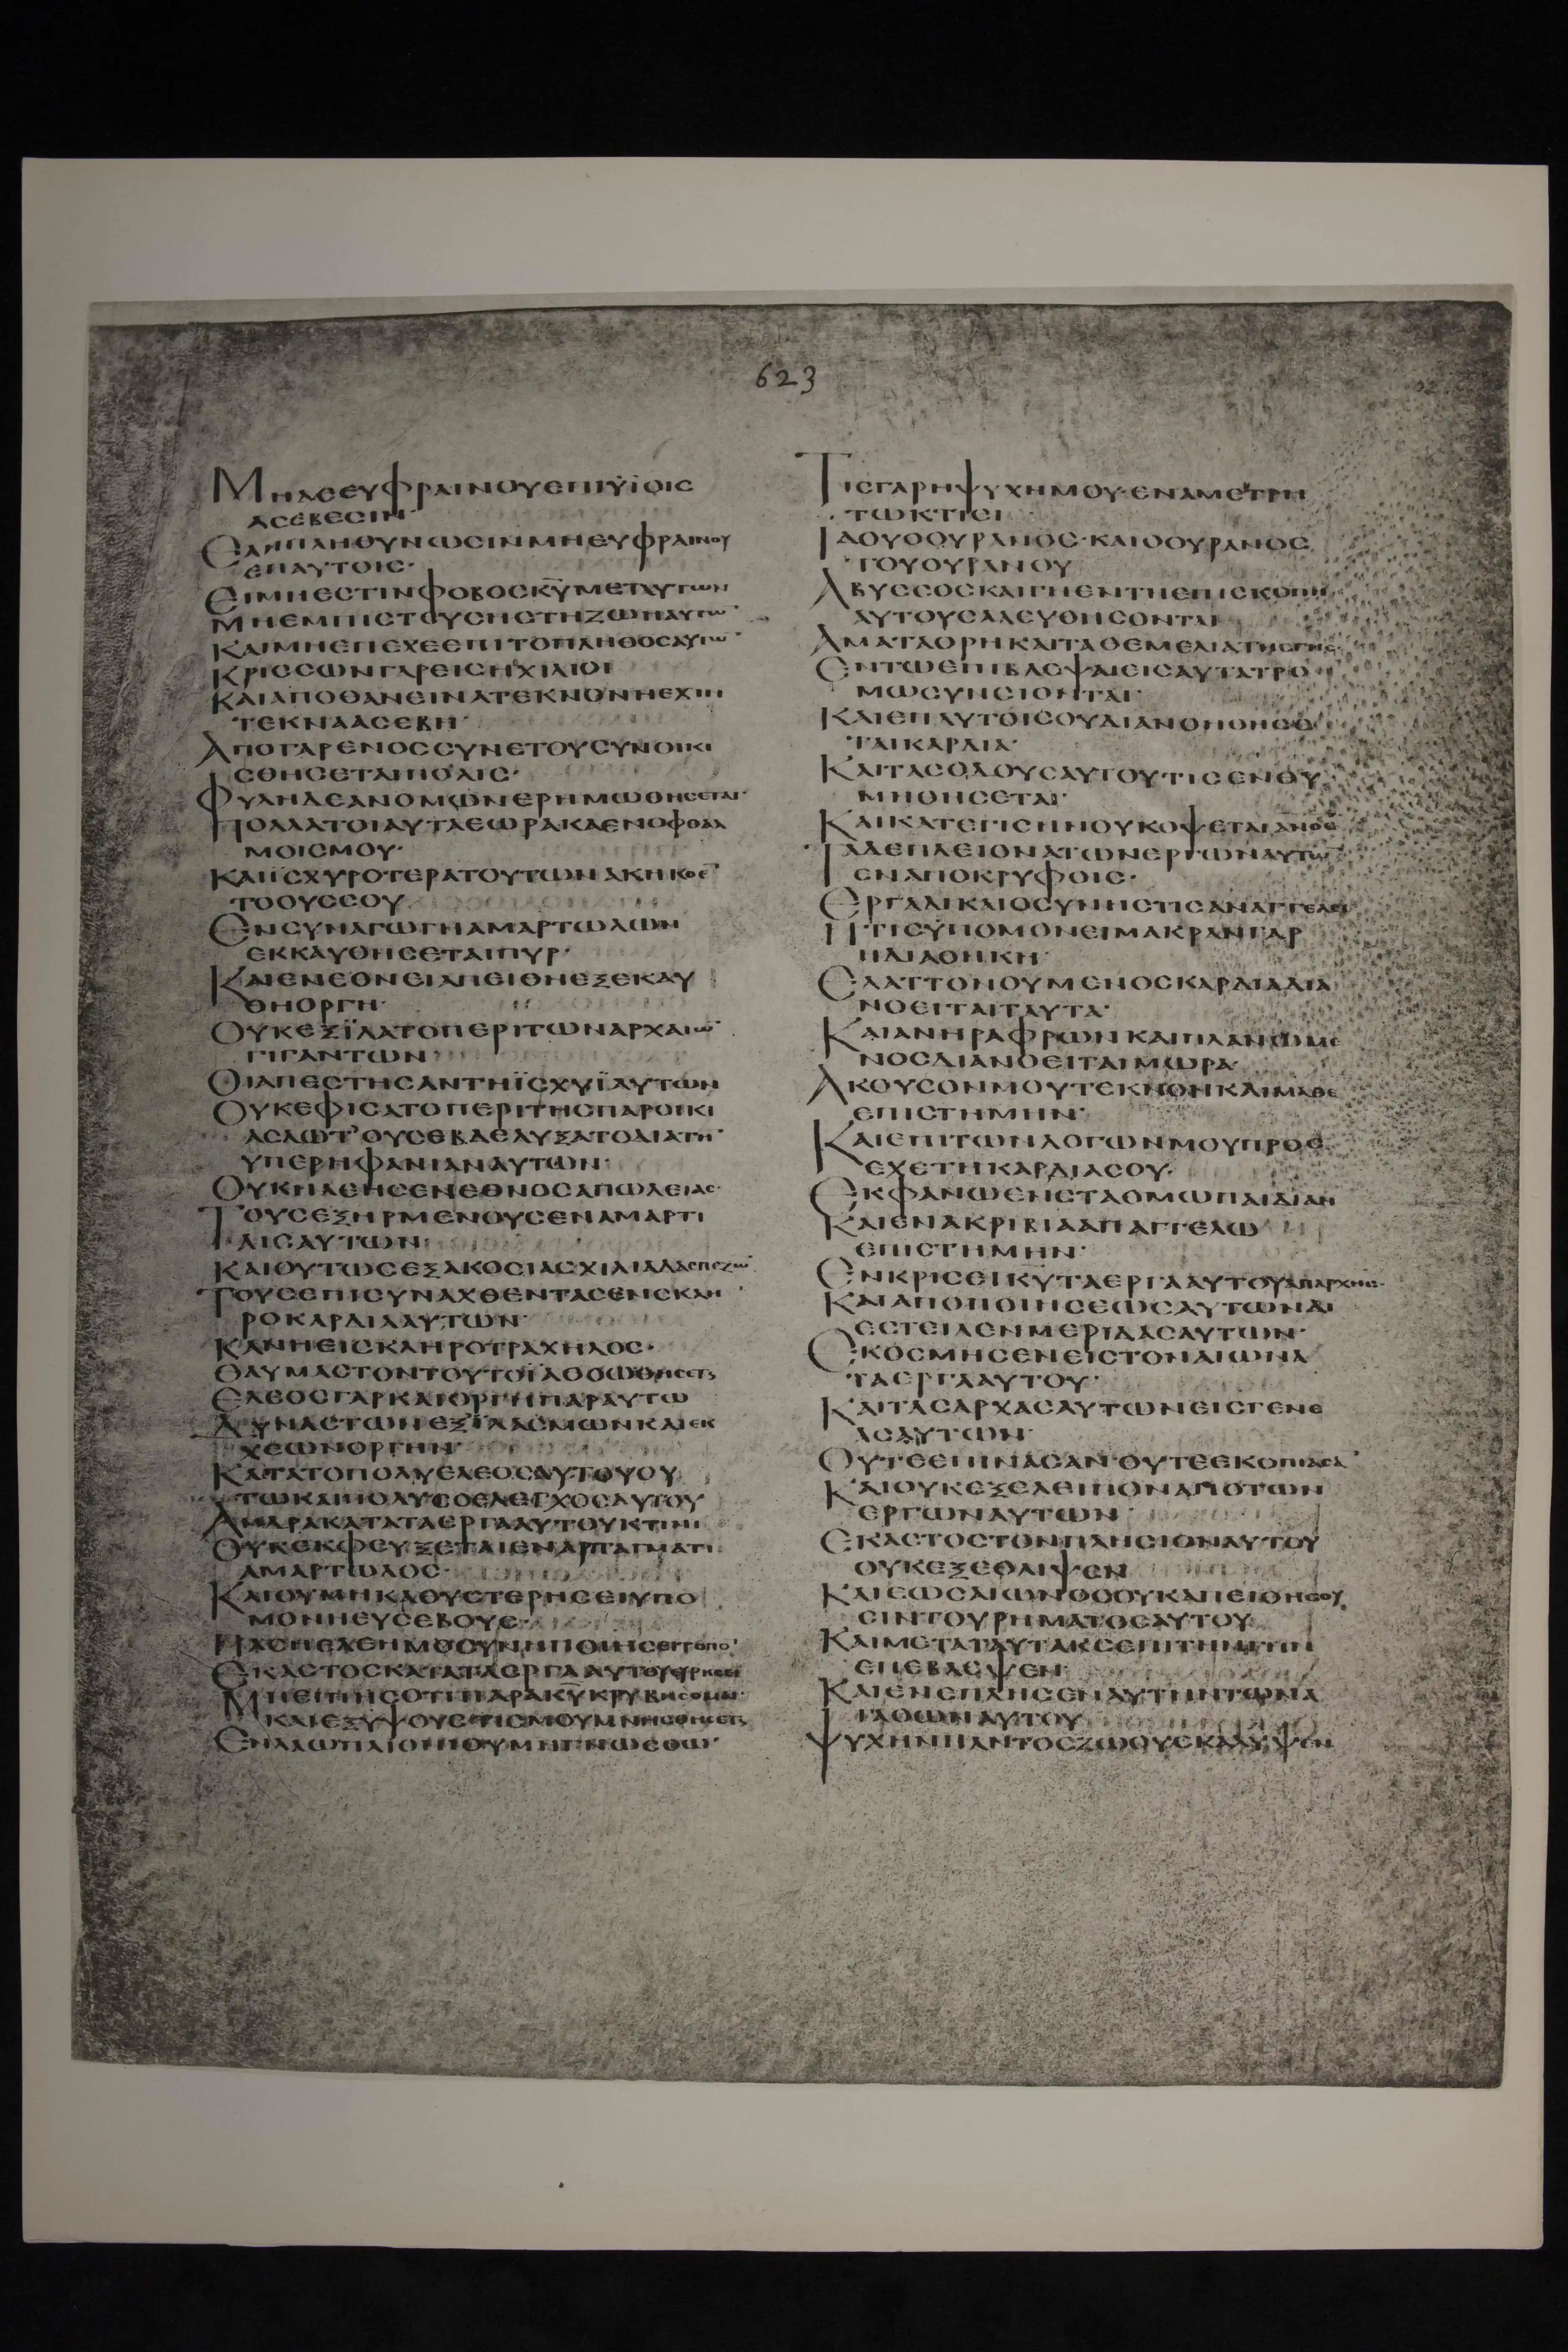 623
ΜΗΔΕΕΥΦΡΑΙΝΟΥΕΠΙΥΪΟΙΣ
ΑΣΕΒΕΣΙΝ·
ΕΑΝΠΛΗΘΥΝΩΣΙΝΜΗΕΥΦΡΑΙΝΟΥ
ΕΠΑΥΤΟΙΣ·
ΕΙΜΗΕΣΤΙΝΦΟΒΟΣΚ̅Υ̅ΜΕΤΑΥΤΩΝ
ΜΗΕΜΠΙΣΤΕΥΣΗΣΤΗΖΩΗΑΥΤΩ̅
ΚΑΙΜΗΕΠΕΧΕΕΠΙΤΟΠΛΗΘΟΣΑΥΤΩ̅
ΚΡΙΣΣΩΝΓΑΡΕΙΣΗΧΙΛΙΟΙ
ΚΑΙΑΠΟΘΑΝΕΙΝΑΤΕΚΝΟΝΗΕΧΙΝ
ΤΕΚΝΑΑΣΕΒΗ·
ΑΠΟΓΑΡΕΝΟΣΣΥΝΕΤΟΥΣΥΝΟΙΚΙ
ΣΘΗΣΕΤΑΙΠΟΛΙΣ·
ΦΥΛΗΔΕΑΝΟΜΩΝΕΡΗΜΩΘΗΣΕΤΑΙ·
ΠΟΛΛΑΤΟΙΑΥΤΑΕΩΡΑΚΑΕΝΟΦΘΑΛ
ΜΟΙΣΜΟΥ·
ΚΑΙΪΣΧΥΡΟΤΕΡΑΤΟΥΤΩΝΑΚΗΚΟΕ̅
ΤΟΟΥΣΣΟΥ
ΕΝΣΥΝΑΓΩΓΗΑΜΑΡΤΩΛΩΝ
ΕΚΚΑΥΘΗΣΕΤΑΙΠΥΡ·
ΚΑΙΕΝΕΘΝΕΙΑΠΕΙΘΗΕΞΕΚΑΥ
ΘΗΟΡΓΗ·
ΟΥΚΕΞΪΛΑΤΟΠΕΡΙΤΩΝΑΡΧΑΙΩ̅
ΓΙΓΑΝΤΩΝ
ΟΙΑΠΕΣΤΗΣΑΝΤΗΪΣΧΥΪΑΥΤΩΝ
ΟΥΚΕΦΙΣΑΤΟΠΕΡΙΤΗΣΠΑΡΟΙΚΙ
ΑΣΛΩΤ'ΟΥΣΕΒΔΕΛΥΞΑΤΟΔΙΑΤΗ̅
ΥΠΕΡΗΦΑΝΙΑΝΑΥΤΩΝ·
ΟΥΚΗΛΕΗΣΕΝΕΘΝΟΣΑΠΩΛΕΙΑΣ·
ΤΟΥΣΕΞΗΡΜΕΝΟΥΣΕΝΑΜΑΡΤΙ
ΑΙΣΑΥΤΩΝ·
ΚΑΙΟΥΤΩΣΕΞΑΚΟΣΙΑΣΧΙΛΙΑΔΑΣΠΕΖΩ̅
ΤΟΥΣΕΠΙΣΥΝΑΧΘΕΝΤΑΣΕΝΣΚΛΗ
ΡΟΚΑΡΔΙΑΑΥΤΩΝ·
ΚΑΝΗΕΙΣΚΛΗΡΟΤΡΑΧΗΛΟΣ·
ΘΑΥΜΑΣΤΟΝΤΟΥΤΟΪΑΘΩΩΘΗΣΕΤΑΙ
ΕΛΕΟΣΓΑΡΚΑΙΟΡΓΗΠΑΡΑΥΤΩ
ΔΥΝΑΣΤΩΝΕΞΪΛΑΣΜΩΝΚΑΙΕΚ
ΧΕΩΝΟΡΓΗΝ·
ΚΑΤΑΤΟΠΟΛΥΕΛΕΟΣΑΥΤΟΥΟΥ
ΤΩΚΑΙΠΟΛΥΣΟΕΛΕΓΧΟΣΑΥΤΟΥ
ΑΝΔΡΑΚΑΤΑΤΑΕΡΓΑΑΥΤΟΥΚΡΙΝΙ
ΟΥΚΕΚΦΕΥΞΕΤΑΙΕΝΑΡΠΑΓΜΑΤΙ
ΑΜΑΡΤΩΛΟΣ·
ΚΑΙΟΥΜΗΚΑΘΥΣΤΕΡΗΣΕΙΥΠΟ
ΜΟΝΗΕΥΣΕΒΟΥΣ·
ΠΑΣΗΕΛΕΗΜΟΣΥΝΗΠΟΙΗΣΕΙΤΟΠΟ̅
ΕΚΑΣΤΟΣΚΑΤΑΤΑΕΡΓΑΑΥΤΟΥΕΥΡΗΣΕΙ
ΜΗΕΙΠΗΣΟΤΙΠΑΡΑΚ̅Υ̅ΚΡΥΒΗΣΟΜΑΙ·
ΚΑΙΕΞΥΨΟΥΣΤΙΣΜΟΥΜΝΗΣΘΗΣΕΤΑΙ
ΕΝΛΑΩΠΛΙΟΝΙΟΥΜΗΓΝΩΣΘΩ·
ΤΙΣΓΑΡΗΨΥΧΗΜΟΥ·ΕΝΑΜΕΤΡΗ
ΤΩΚΤΙΣΙ
ΙΔΟΥΟΟΥΡΑΝΟΣ·ΚΑΙΟΟΥΡΑΝΟΣ
ΤΟΥΟΥΡΑΝΟΥ
ΑΒΥΣΣΟΣΚΑΙΓΗΕΝΤΗΕΠΙΣΚΟΠΗ
ΑΥΤΟΥΣΑΛΕΥΘΗΣΟΝΤΑΙ
ΑΜΑΤΑΟΡΗΚΑΙΤΑΘΕΜΕΛΙΑΤΗΣΓΗΣ·
ΕΝΤΩΕΠΙΒΛΕΨΑΙΕΙΣΑΥΤΑΤΡΟ
ΜΩΣΥΝΣΙΟΝΤΑΙ·
ΚΑΙΕΠΑΥΤΟΙΣΟΥΔΙΑΝΟΗΘΗΣΕ
ΤΑΙΚΑΡΔΙΑ·
ΚΑΙΤΑΣΟΔΟΥΣΑΥΤΟΥΤΙΣΕΝΘΥ
ΜΗΘΗΣΕΤΑΙ·
ΚΑΙΚΑΤΕΓΙΣΗΝΟΥΚΟΨΕΤΑΙΑΝΟΣ
ΤΑΔΕΠΛΕΙΟΝΑΤΩΝΕΡΓΩΝΑΥΤΟΥ
ΕΝΑΠΟΚΡΥΦΟΙΣ·
ΕΡΓΑΔΙΚΑΙΟΣΥΝΗΣΤΙΣΑΝΑΓΓΕΛΕΙ
ΗΤΙΣΫΠΟΜΟΝΕΙΜΑΚΡΑΝΓΑΡ
ΗΔΙΑΘΗΚΗ·
ΕΛΑΤΤΟΝΟΥΜΕΝΟΣΚΑΡΔΙΑΔΙΑ
ΝΟΕΙΤΑΙΤΑΥΤΑ·
ΚΑΙΑΝΗΡΑΦΡΩΝΚΑΙΠΛΑΝΩΜΕ
ΝΟΣΔΙΑΝΟΕΙΤΑΙΜΩΡΑ·
ΑΚΟΥΣΟΝΜΟΥΤΕΚΝΟΝΚΑΙΜΑΘΕ
ΕΠΙΣΤΗΜΗΝ·
ΚΑΙΕΠΙΤΩΝΛΟΓΩΝΜΟΥΠΡΟΣ
ΕΧΕΤΗΚΑΡΔΙΑΣΟΥ·
ΕΚΦΑΝΩΕΝΣΤΑΘΜΩΠΑΙΔΙΑΝ
ΚΑΙΕΝΑΚΡΙΒΙΑΑΠΑΓΓΕΛΩ
ΕΠΙΣΤΗΜΗΝ·
ΕΝΚΡΙΣΕΙΚ̅Υ̅ΤΑΕΡΓΑΑΥΤΟΥΑΠΑΡΧΗΣ·
ΚΑΙΑΠΟΠΟΙΗΣΕΩΣΑΥΤΩΝΔΙ
ΕΣΤΕΙΛΕΝΜΕΡΙΔΑΣΑΥΤΩΝ·
ΕΚΟΣΜΗΣΕΝΕΙΣΤΟΝΑΙΩΝΑ
ΤΑΕΡΓΑΑΥΤΟΥ·
ΚΑΙΤΑΣΑΡΧΑΣΑΥΤΩΝΕΙΣΓΕΝΕ
ΑΣΑΥΤΩΝ·
ΟΥΤΕΕΠΙΝΑΣΑΝ·ΟΥΤΕΕΚΟΠΙΑΣΑ̅
ΚΑΙΟΥΚΕΞΕΛΕΙΠΟΝΑΠΟΤΩΝ
ΕΡΓΩΝΑΥΤΩΝ
ΕΚΑΣΤΟΣΤΟΝΠΛΗΣΙΟΝΑΥΤΟΥ
ΟΥΚΕΞΕΘΛΙΨΕΝ
ΚΑΙΕΩΣΑΙΩΝΟΣΟΥΚΑΠΕΙΘΗΣΟΥ
ΣΙΝΤΟΥΡΗΜΑΤΟΣΑΥΤΟΥ
ΚΑΙΜΕΤΑΤΑΥΤΑΚΣΕΠΙΤΗΝΓΗΝ
ΕΠΕΒΛΕΨΕΝ
ΚΑΙΕΝΕΠΛΗΣΕΝΑΥΤΗΝΤΩΝΑ
ΓΑΘΩΝΑΥΤΟΥ
ΨΥΧΗΝΠΑΝΤΟΣΖΩΟΥΕΚΑΛΥΨΕΝ